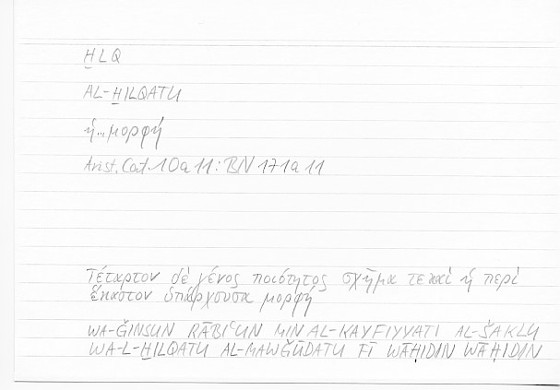 ḪLQ
AL-ḪILQATU
ἡ...μορφή
Arist. Cat. 10a11: BN 171a11
Τέταρτον δὲ γένος ποιότητος σχῆμα τε καὶ ἡ περὶ
ἕκαστον ὑπάρχουσα μορφή
WA-ǦINSUN RĀBIʿUN MIN AL-KAYFIYYATI AL-ŠAKLU
WA-L-ḪILQATU AL-MAWǦŪDATU FĪ WĀḤIDIN WĀḤIDIN